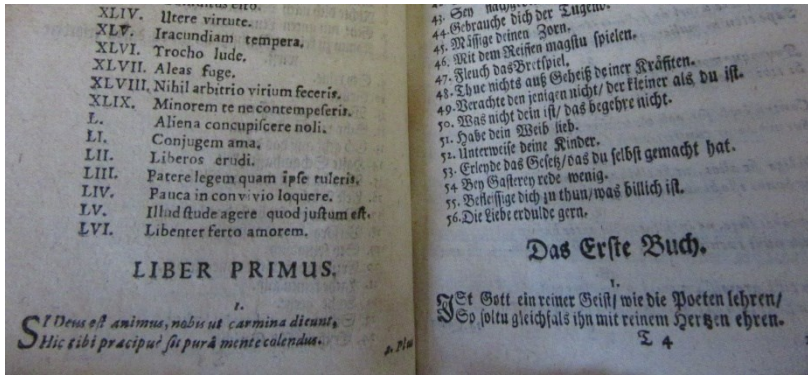 XLIV. Utere virtute.
XLV. Iracundiam tempera.
XLVI. Trocho lude.
XLVII. Aleas fuge.
XLVIII. Nihil arbitrio virium feceris.
XLIX. Minorem te ne contempseris.
L. Aliena concupiscere noli.
LI. Conjugem ama.
LII. Liberos erudi.
LIII. Patere legem quam ipse tuleris.
LIV. Pauca in convivio loquere.
LV. Illud stude agere quod justum est.
LVI. Libenter ferto amorem.
LIBER PRIMUS.
1.
SI Deus est animus, nobis ut carmina dicunt,
Hic tibi præcipuè sit purâ mente colendus.
2. Plus
43. Sey
44. Gebrauche dich der Tugend.
45. Mässige deinen Zorn.
46. Mit dem Reiffen magstu spielen.
47. Fleuch das Bretspiel.
48. Thue nichts auß Geheiß deiner Kräfften.
49. Verachte den jenigen nicht/ der kleiner als du ist.
50. Was nicht dein ist/ das begehre nicht.
51. Habe dein Weib lieb.
52. Unterweise deine Kinder.
53. Erleyde das Gesetz/ das du selbst gemacht hat.
54 Bey Gasterey rede wenig.
55. Befleissige dich zu thun/ was billich ist.
56. Die Liebe erdulde gern.
Das Erste Buch.
1.
ISt Gott ein reiner Geist/ wie die Poeten lehren/
So soltu gleichfals ihn mit reinem Hertzen ehren.
T 4